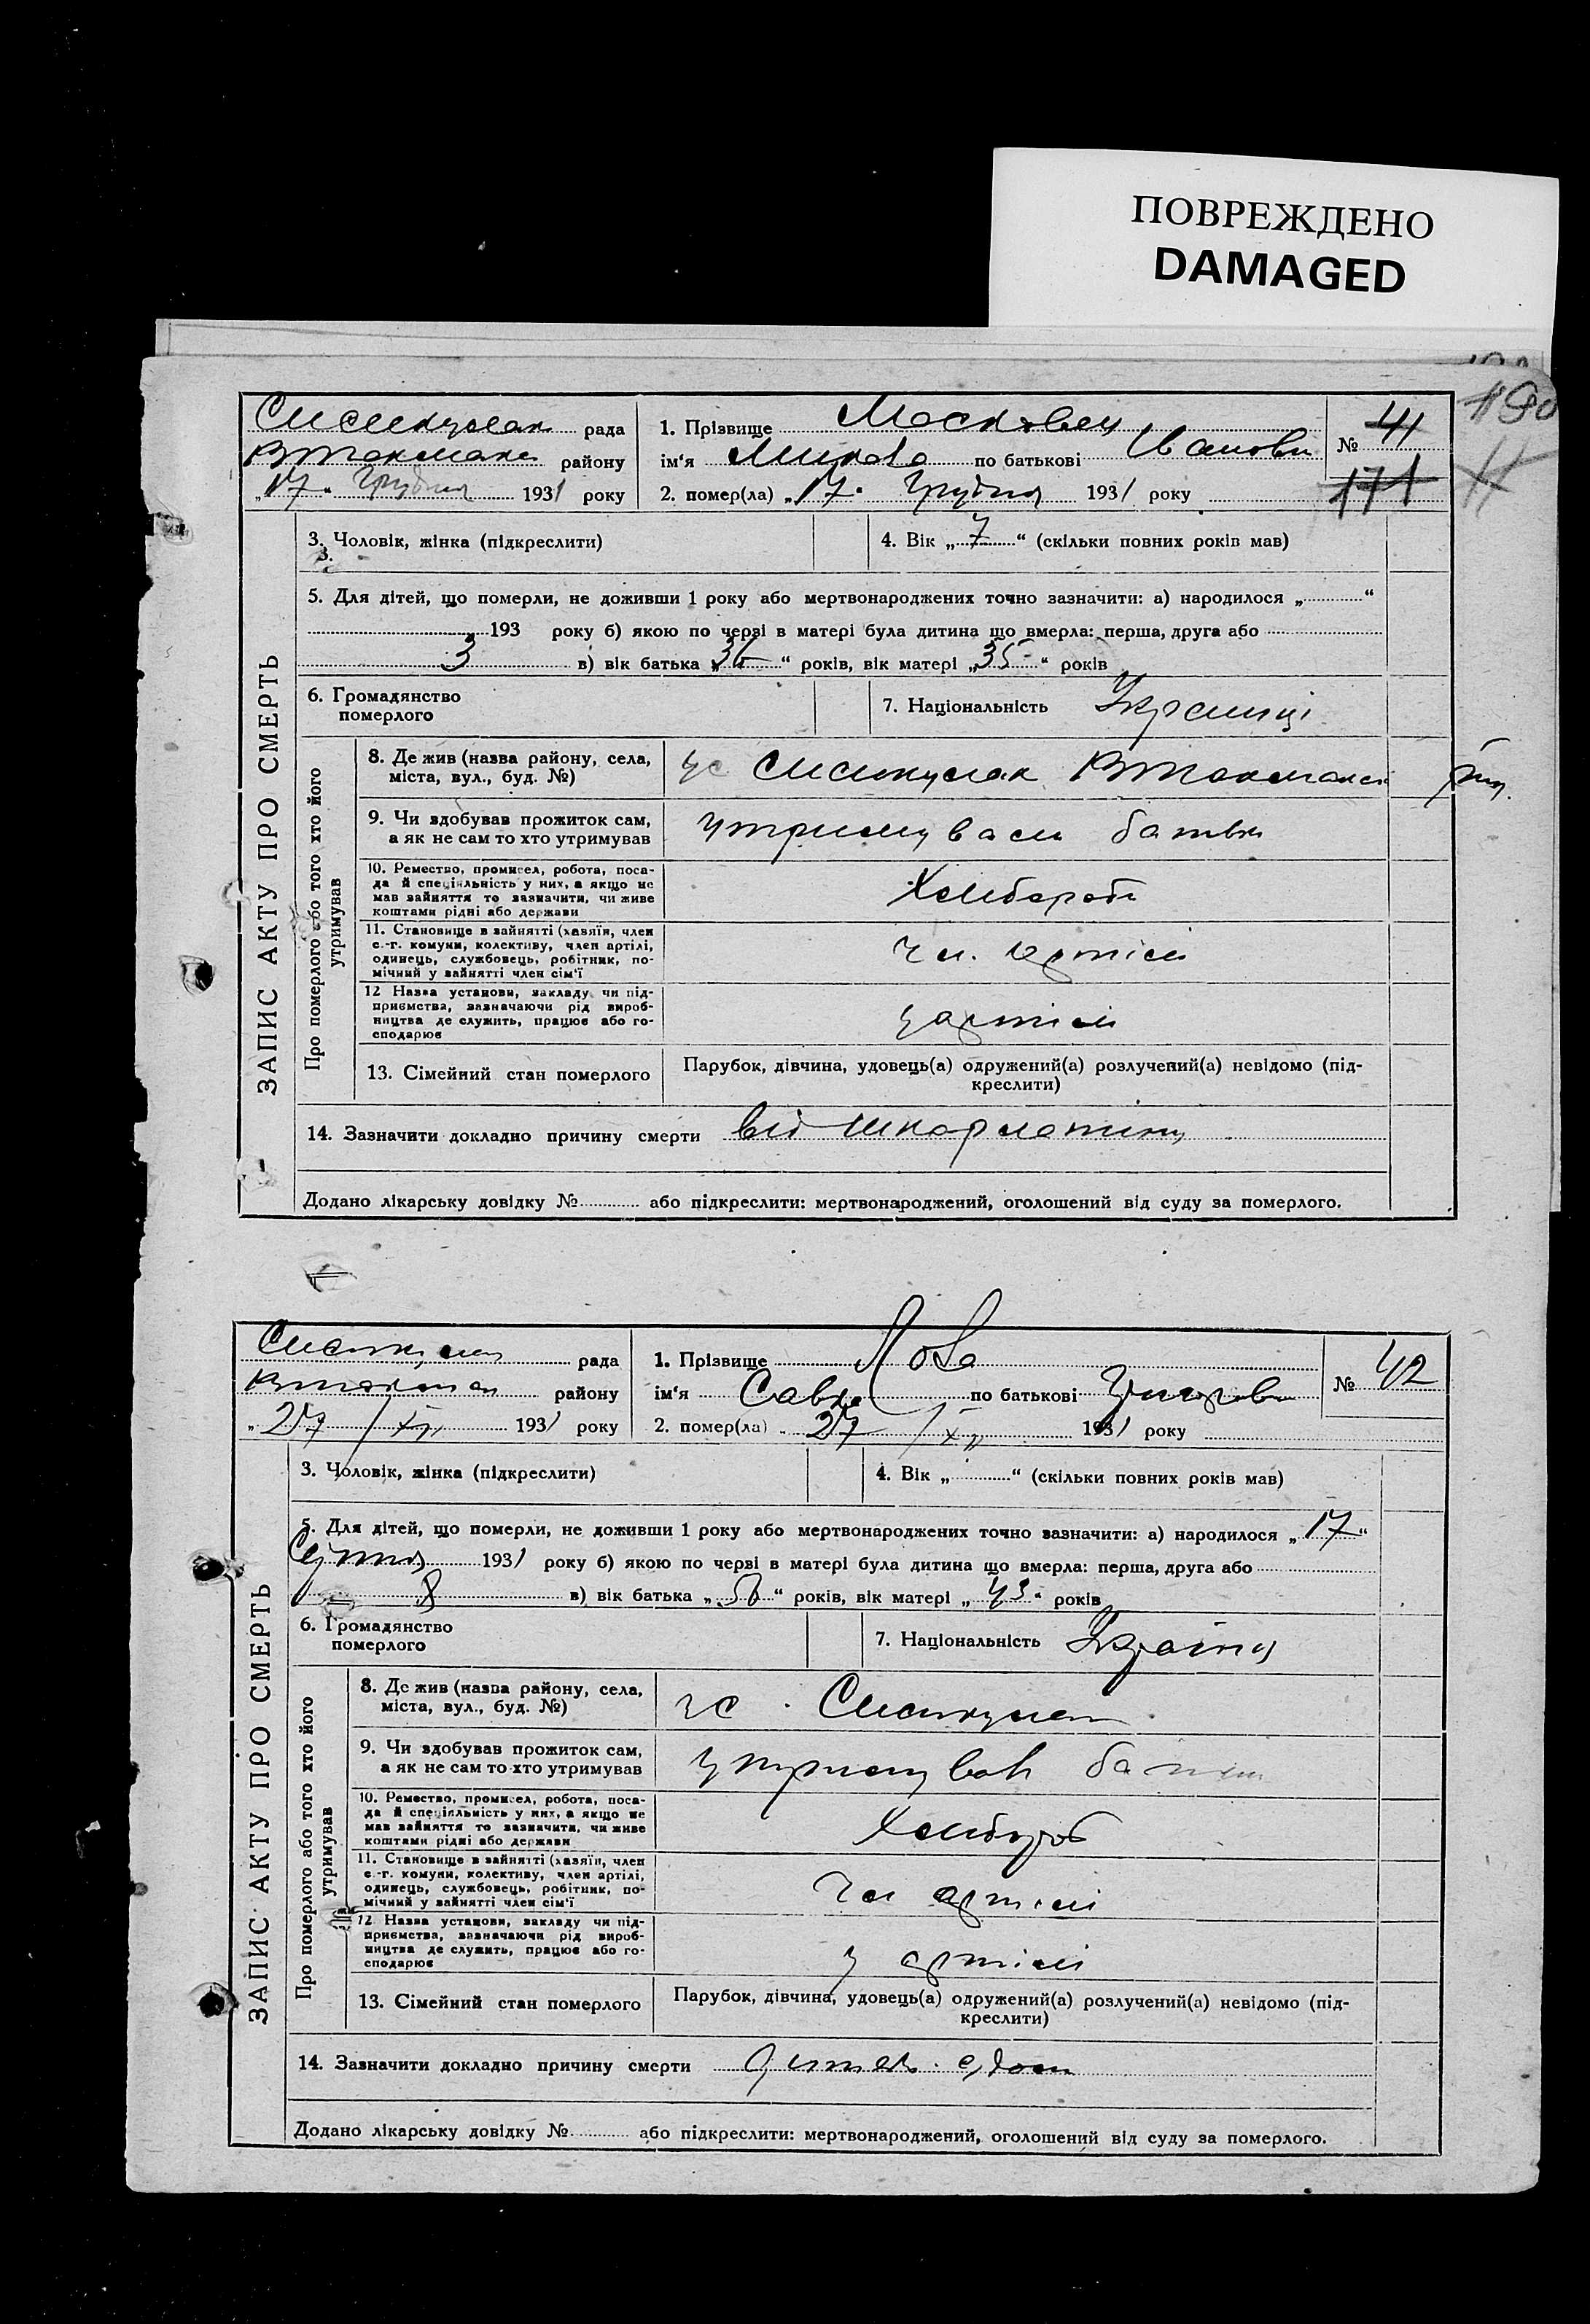 ПОВРЕЖДЕНО
DAMAGED
рада
району
„17“ Грудня 1931 року
1. Прізвище Московец
ім‘я по батькові Іванови
2. помер(ла) „17“ Грудня 1931 року
№ 41
171
ЗАПИС АКТУ ПРО СМЕРТЬ
3. Чоловік, жінка (підкреслити)
3.
4. Вік „7“ (скільки повних років мав)
5. Для дітей, що померли, не доживши 1 року або мертвонароджених точно зазначити: а) народилося „ “
193 року б) якою по черзі в матері була дитина що вмерла: перша, друга або
3 в) вік батька „36“ років, вік матері „35“ років
6. Громадянство
померлого
7. Національність
Про померлого або того хто його
утримував
8. Де жив (назва району, села,
міста, вул., буд. №)
9. Чи здобував прожиток сам,
а як не сам то хто утримував
утримували батьки
10. Ремество, промисел, робота, поса-
да й спеціяльність у них, а якщо не
мав зайняття то зазначити, чи живе
коштами рідні або держави
11. Становище в зайнятті (хазяїн, член
с.-г. комуни, колективу, член артілі,
одинець, службовець, робітник, по-
мічний у зайнятті член сім'ї
чл. артілі
12 Назва установи, закладу чи під-
приємства, зазначаючи рід вироб-
ництва де служить, працює або го-
сподарює
у артілі
13. Сімейний стан померлого
Парубок, дівчина, удовець(а) одружений(а) розлучений(а) невідомо (під-
креслити)
14. Зазначити докладно причину смерти від шкарлатини
Додано лікарську довідку № або підкреслити: мертвонароджений, оголошений від суду за померлого.
рада
району
„27 / XII 1931 року
1. Прізвище Лова
ім‘я Савка по батькові
2. помер(ла) „27 / XII 1931 року
№ 42
ЗАПИС АКТУ ПРО СМЕРТЬ
3. Чоловік, жінка (підкреслити)
4. Вік „ “ (скільки повних років мав)
5. Для дітей, що померли, не доживши 1 року або мертвонароджених точно зазначити: а) народилося „17“
1931 року б) якою по черзі в матері була дитина що вмерла: перша, друга або
8 в) вік батька „ “ років, вік матері „43“ років
6. Громадянство
померлого
7. Національність
Про померлого або того хто його
утримував
8. Де жив (назва району, села,
міста, вул., буд. №)
9. Чи здобував прожиток сам,
а як не сам то хто утримував
10. Ремество, промисел, робота, поса-
да й спеціяльність у них, а якщо не
мав зайняття то зазначити, чи живе
коштами рідні або держави
Хлибороб
11. Становище в зайнятті (хазяїн, член
с.-г. комуни, колективу, член артілі,
одинець, службовець, робітник, по-
мічний у зайнятті член сім'ї
чл артілі
12 Назва установи, закладу чи під-
приємства, зазначаючи рід вироб-
ництва де служить, працює або го-
сподарює
у артілі
13. Сімейний стан померлого
Парубок, дівчина, удовець(а) одружений(а) розлучений(а) невідомо (під-
креслити)
14. Зазначити докладно причину смерти
Додано лікарську довідку № або підкреслити: мертвонароджений, оголошений від суду за померлого.